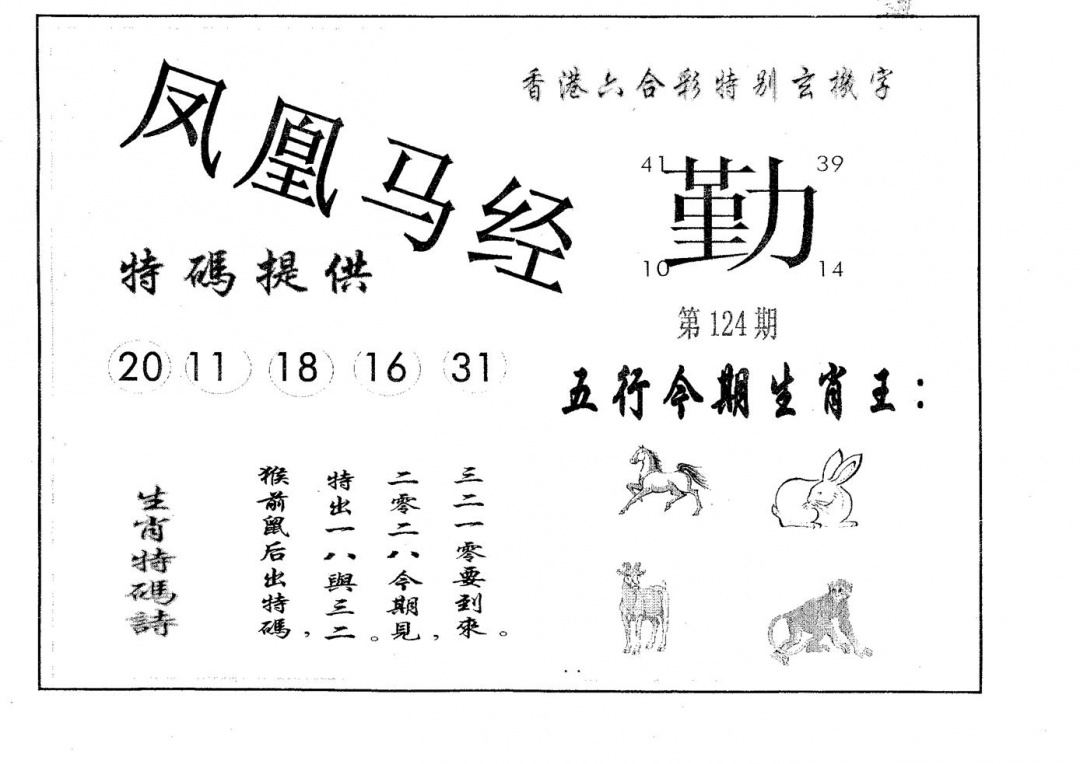 凤凰马经
香港六合彩特别玄機字
41 39
勤
10 14
特碼提供
第124期
20 11 18 16 31
五行今期生肖王：
生肖特碼詩
猴前鼠后出特碼，
特出一八與三二。
二零二八今期見，
三二一零要到來。